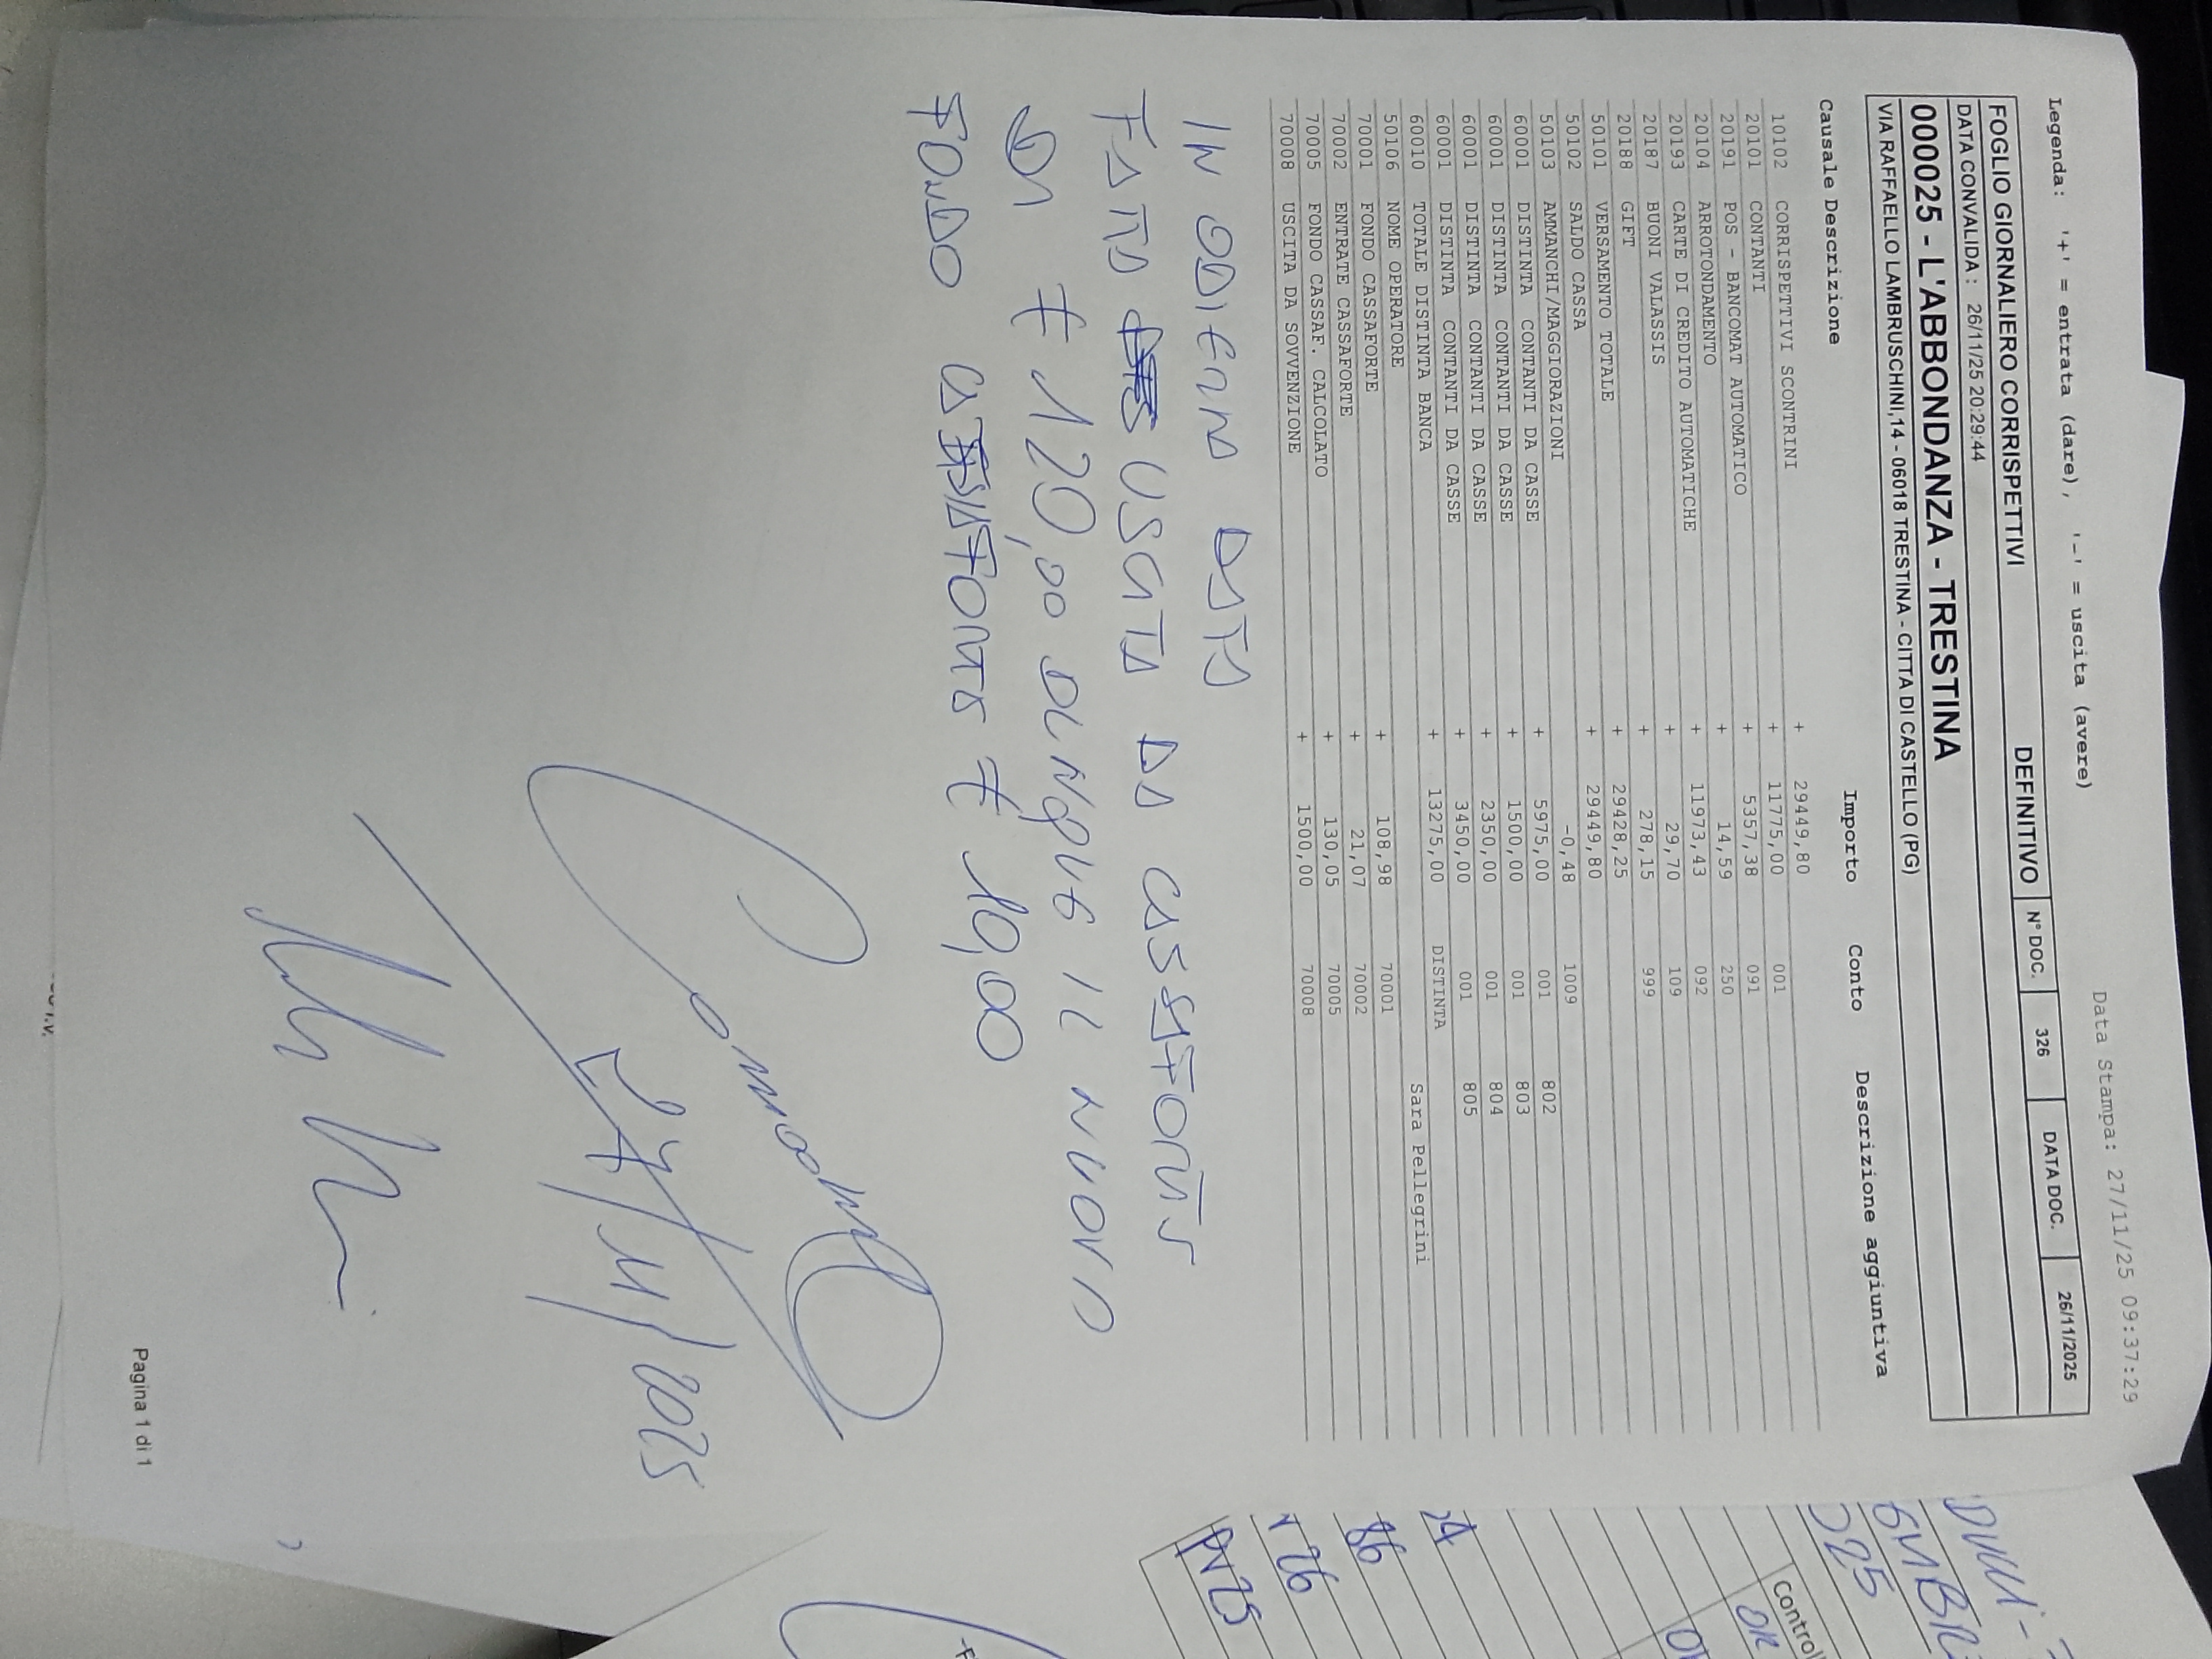 Data Stampa: 27/11/25 09:37:29
Legenda: '+' = entrata (dare), '-' = uscita (avere)
FOGLIO GIORNALIERO CORRISPETTIVI DEFINITIVO N° DOC. 326 DATA DOC. 26/11/2025
DATA CONVALIDA : 26/11/25 20:29:44
000025 - L'ABBONDANZA - TRESTINA
VIA RAFFAELLO LAMBRUSCHINI,14 - 06018 TRESTINA - CITTA DI CASTELLO (PG)
Causale Descrizione Importo Conto Descrizione aggiuntiva
10102 CORRISPETTIVI SCONTRINI + 29449,80
20101 CONTANTI + 11775,00 001
20191 POS - BANCOMAT AUTOMATICO + 5357,38 091
20104 ARROTONDAMENTO + 14,59 250
20193 CARTE DI CREDITO AUTOMATICHE + 11973,43 092
20187 BUONI VALASSIS + 29,70 109
20188 GIFT + 278,15 999
50101 VERSAMENTO TOTALE + 29428,25
50102 SALDO CASSA + 29449,80
50103 AMMANCHI/MAGGIORAZIONI -0,48 1009
60001 DISTINTA CONTANTI DA CASSE + 5975,00 001 802
60001 DISTINTA CONTANTI DA CASSE + 1500,00 001 803
60001 DISTINTA CONTANTI DA CASSE + 2350,00 001 804
60001 DISTINTA CONTANTI DA CASSE + 3450,00 001 805
60010 TOTALE DISTINTA BANCA + 13275,00 DISTINTA
50106 NOME OPERATORE Sara Pellegrini
70001 FONDO CASSAFORTE + 108,98 70001
70002 ENTRATE CASSAFORTE + 21,07 70002
70005 FONDO CASSAF. CALCOLATO + 130,05 70005
70008 USCITA DA SOVVENZIONE + 1500,00 70008
IN ODIERNA DATA
FATTA USCITA DA CASSAFORTE
DI € 120,00 DUNQUE IL NUOVO
FONDO CASSAFORTE € 10,00
27/11/2025
Pagina 1 di 1
Control
OK
86
26
PV25